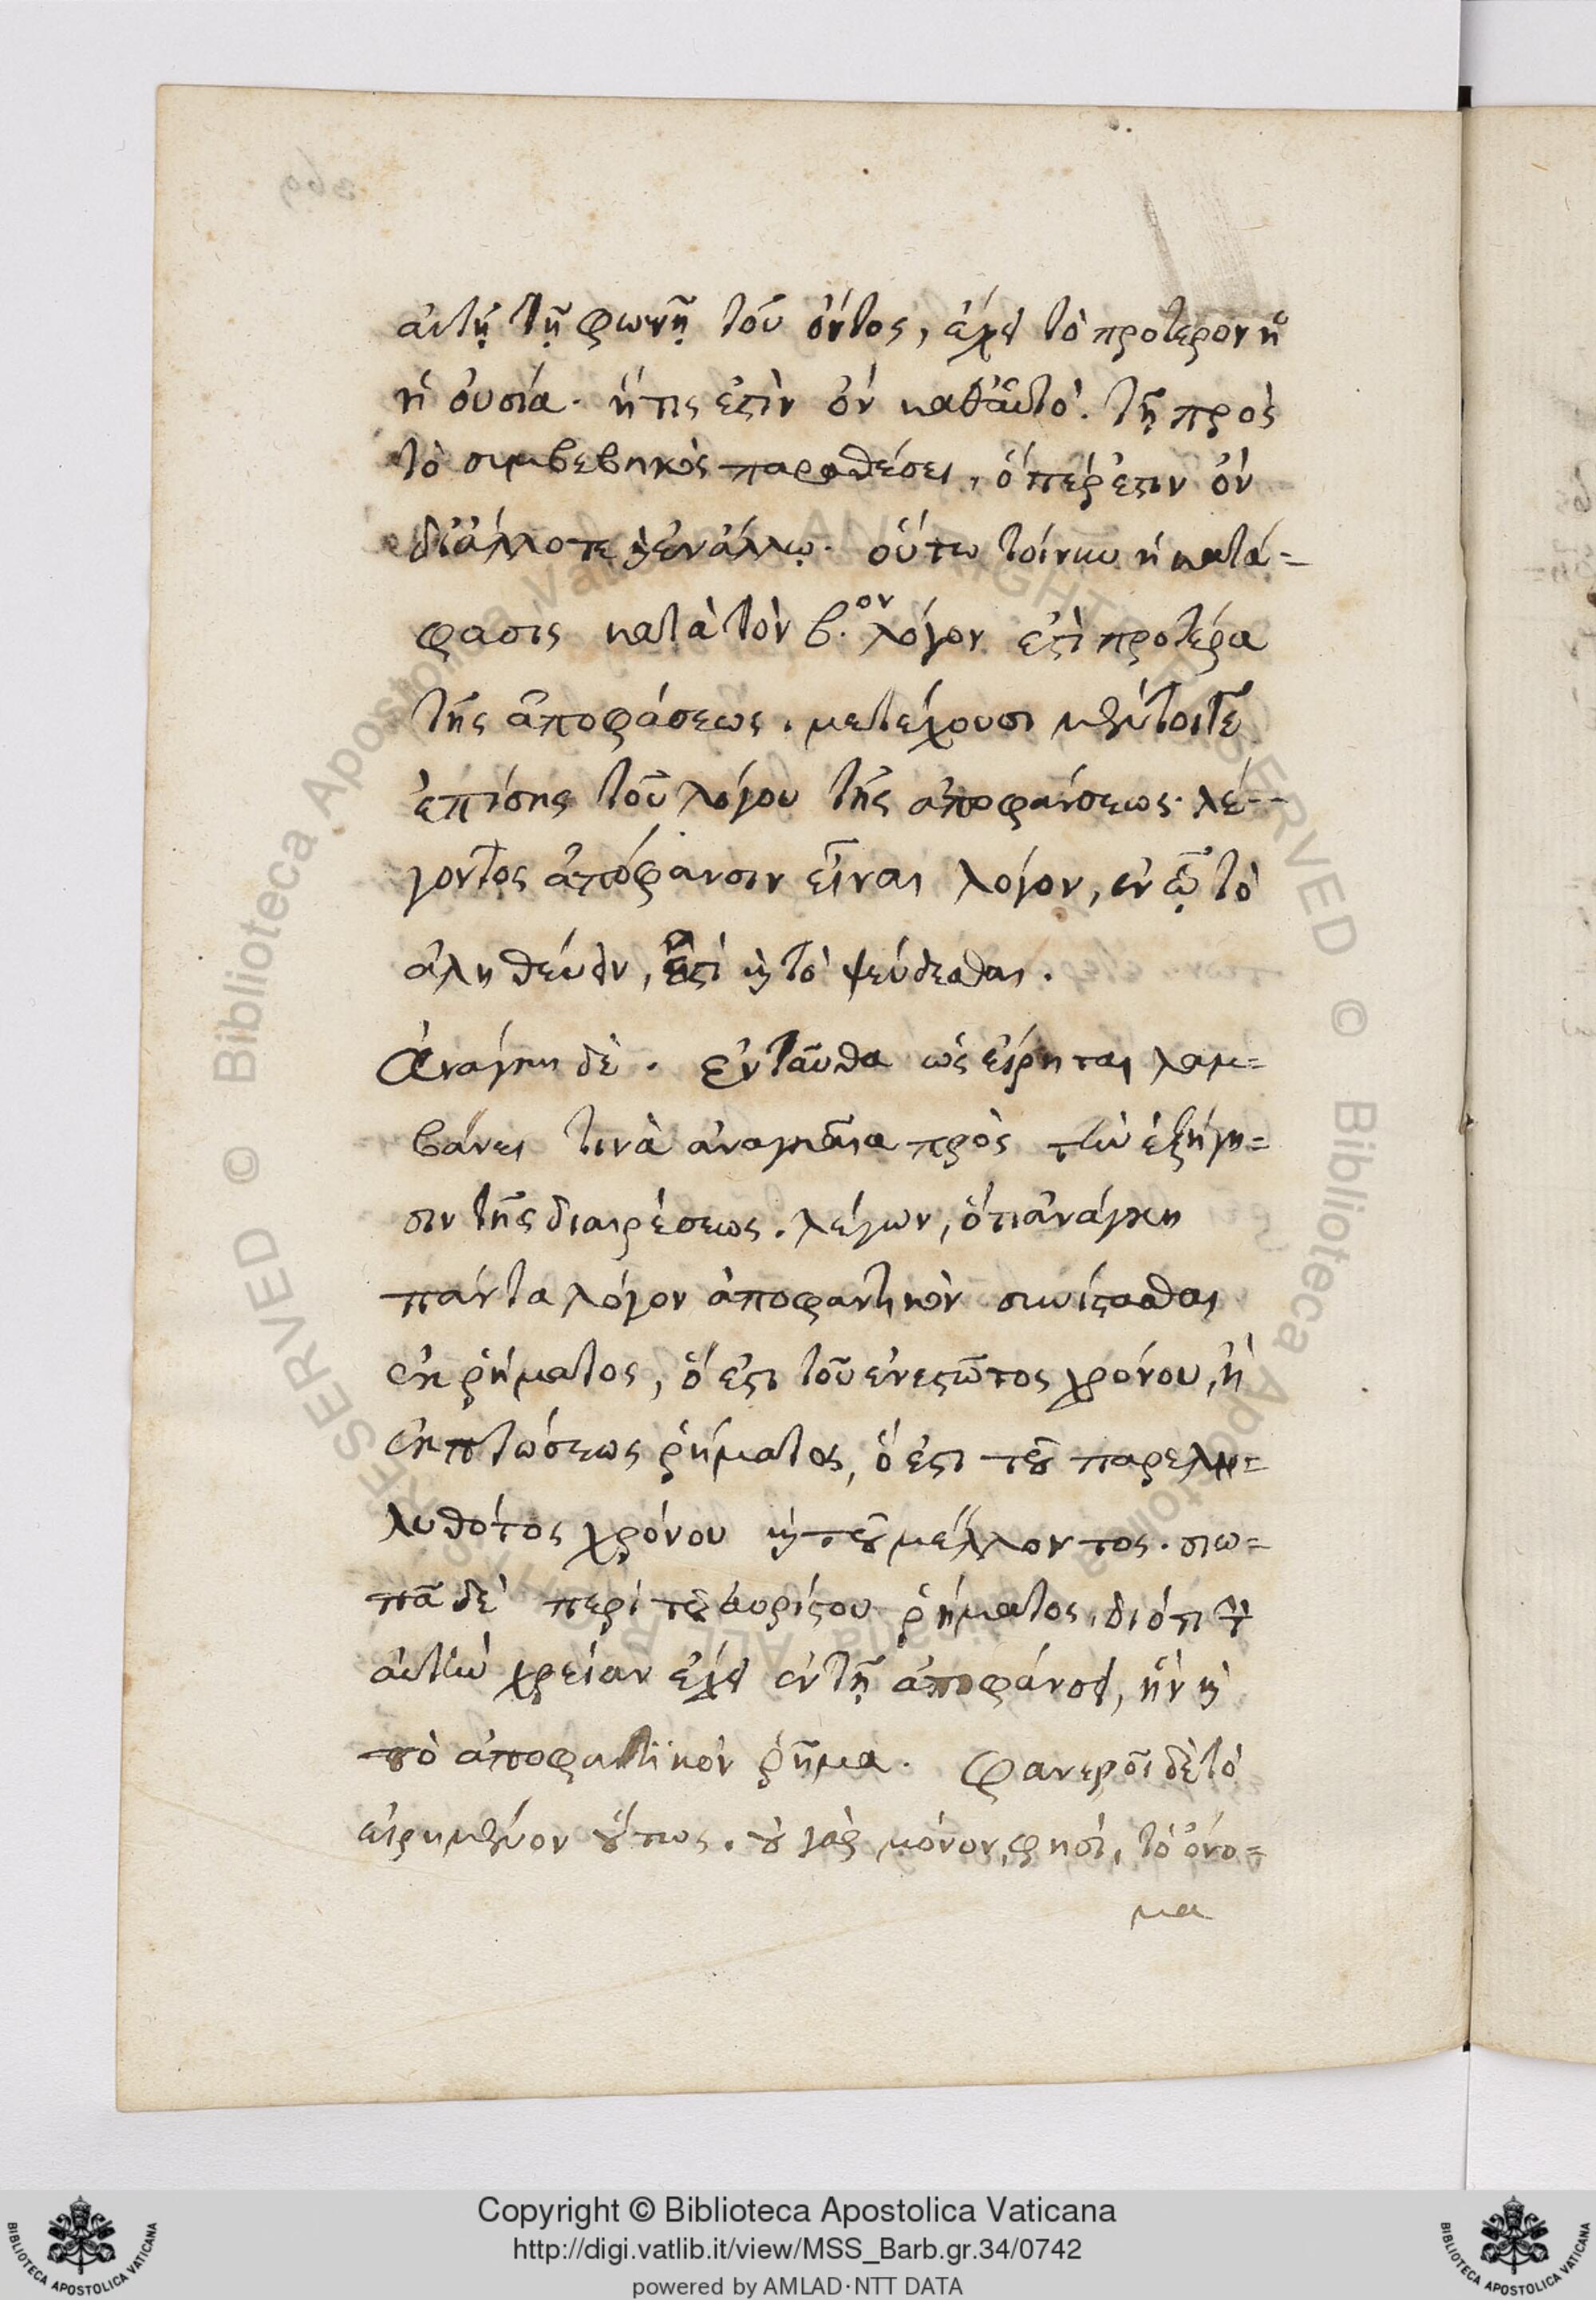 αὐτῇ τῇ φωνῇ τοῦ ὄντος, ἔχει τὸ πρότερον ἡ
ἡ οὐσία. ἥτις ἐστὶν ὂν καθ' αὑτό. τῇ πρὸς
τὸ συμβεβηκὸς παραθέσει, ὅπέρ ἐστιν ὂν
δι' ἄλλο τε καὶ ἐν ἄλλῳ. οὕτω τοίνυν ἡ κατά=
φασις κατὰ τὸν β.ον λόγον ἐστὶ προτέρα
τῆς ἀποφάσεως. μετέχουσι μέντοιγε
ἐπίσης τοῦ λόγου τῆς ἀποφαίσεως. λέ-
γοντος ἀπόφανσιν εἶναι λόγον, ἐν ᾧ τὸ
ἀληθεύειν, ἐστὶ καὶ τὸ ψεύδεσθαι.
Ἀνάγκη δὲ. ἐνταῦθα ὡς εἴρηται λαμ=
βάνει τινὰ ἀναγκαῖα πρὸς τὴν ἐξήγη=
σιν τῆς διαιρέσεως. λέγων, ὅτι ἀνάγκη
πάντα λόγον ἀποφαντικὸν συνίστασθαι
ἐκ ῥήματος, ὅ ἐστι τοῦ ἐνεστῶτος χρόνου, ἢ
ἐκ πτώσεως ῥήματος, ὅ ἐστι τοῦ παρελη=
λυθότος χρόνου καὶ τοῦ μέλλοντος. σιω=
πᾷ δὲ περὶ τοῦ ἀορίστου ῥήματος, διότι τὴν
αὐτὴν χρείαν ἔχει ἐν τῇ ἀποφάνσει, ἣν καὶ
τὸ ἀποφατικὸν ῥῆμα. Φανεροῖ δὲ τὸ
εἰρημένον οὕτως. οὐ γὰρ μόνον, φησὶ, τὸ ὄνο=
μα
Copyright © Biblioteca Apostolica Vaticana
http://digi.vatlib.it/view/MSS_Barb.gr.34/0742
powered by AMLAD·NTT DATA